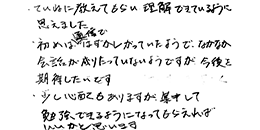 ・ていねいに教えてもらい理解できているように
思えました
・初めは通信ではずかしがっていたようで、なかなか
会話が成り立っていないようですが今後を
期待したいです
・少し心配もありますが、集中して
勉強できるようになってもらえれば
いいかと思います